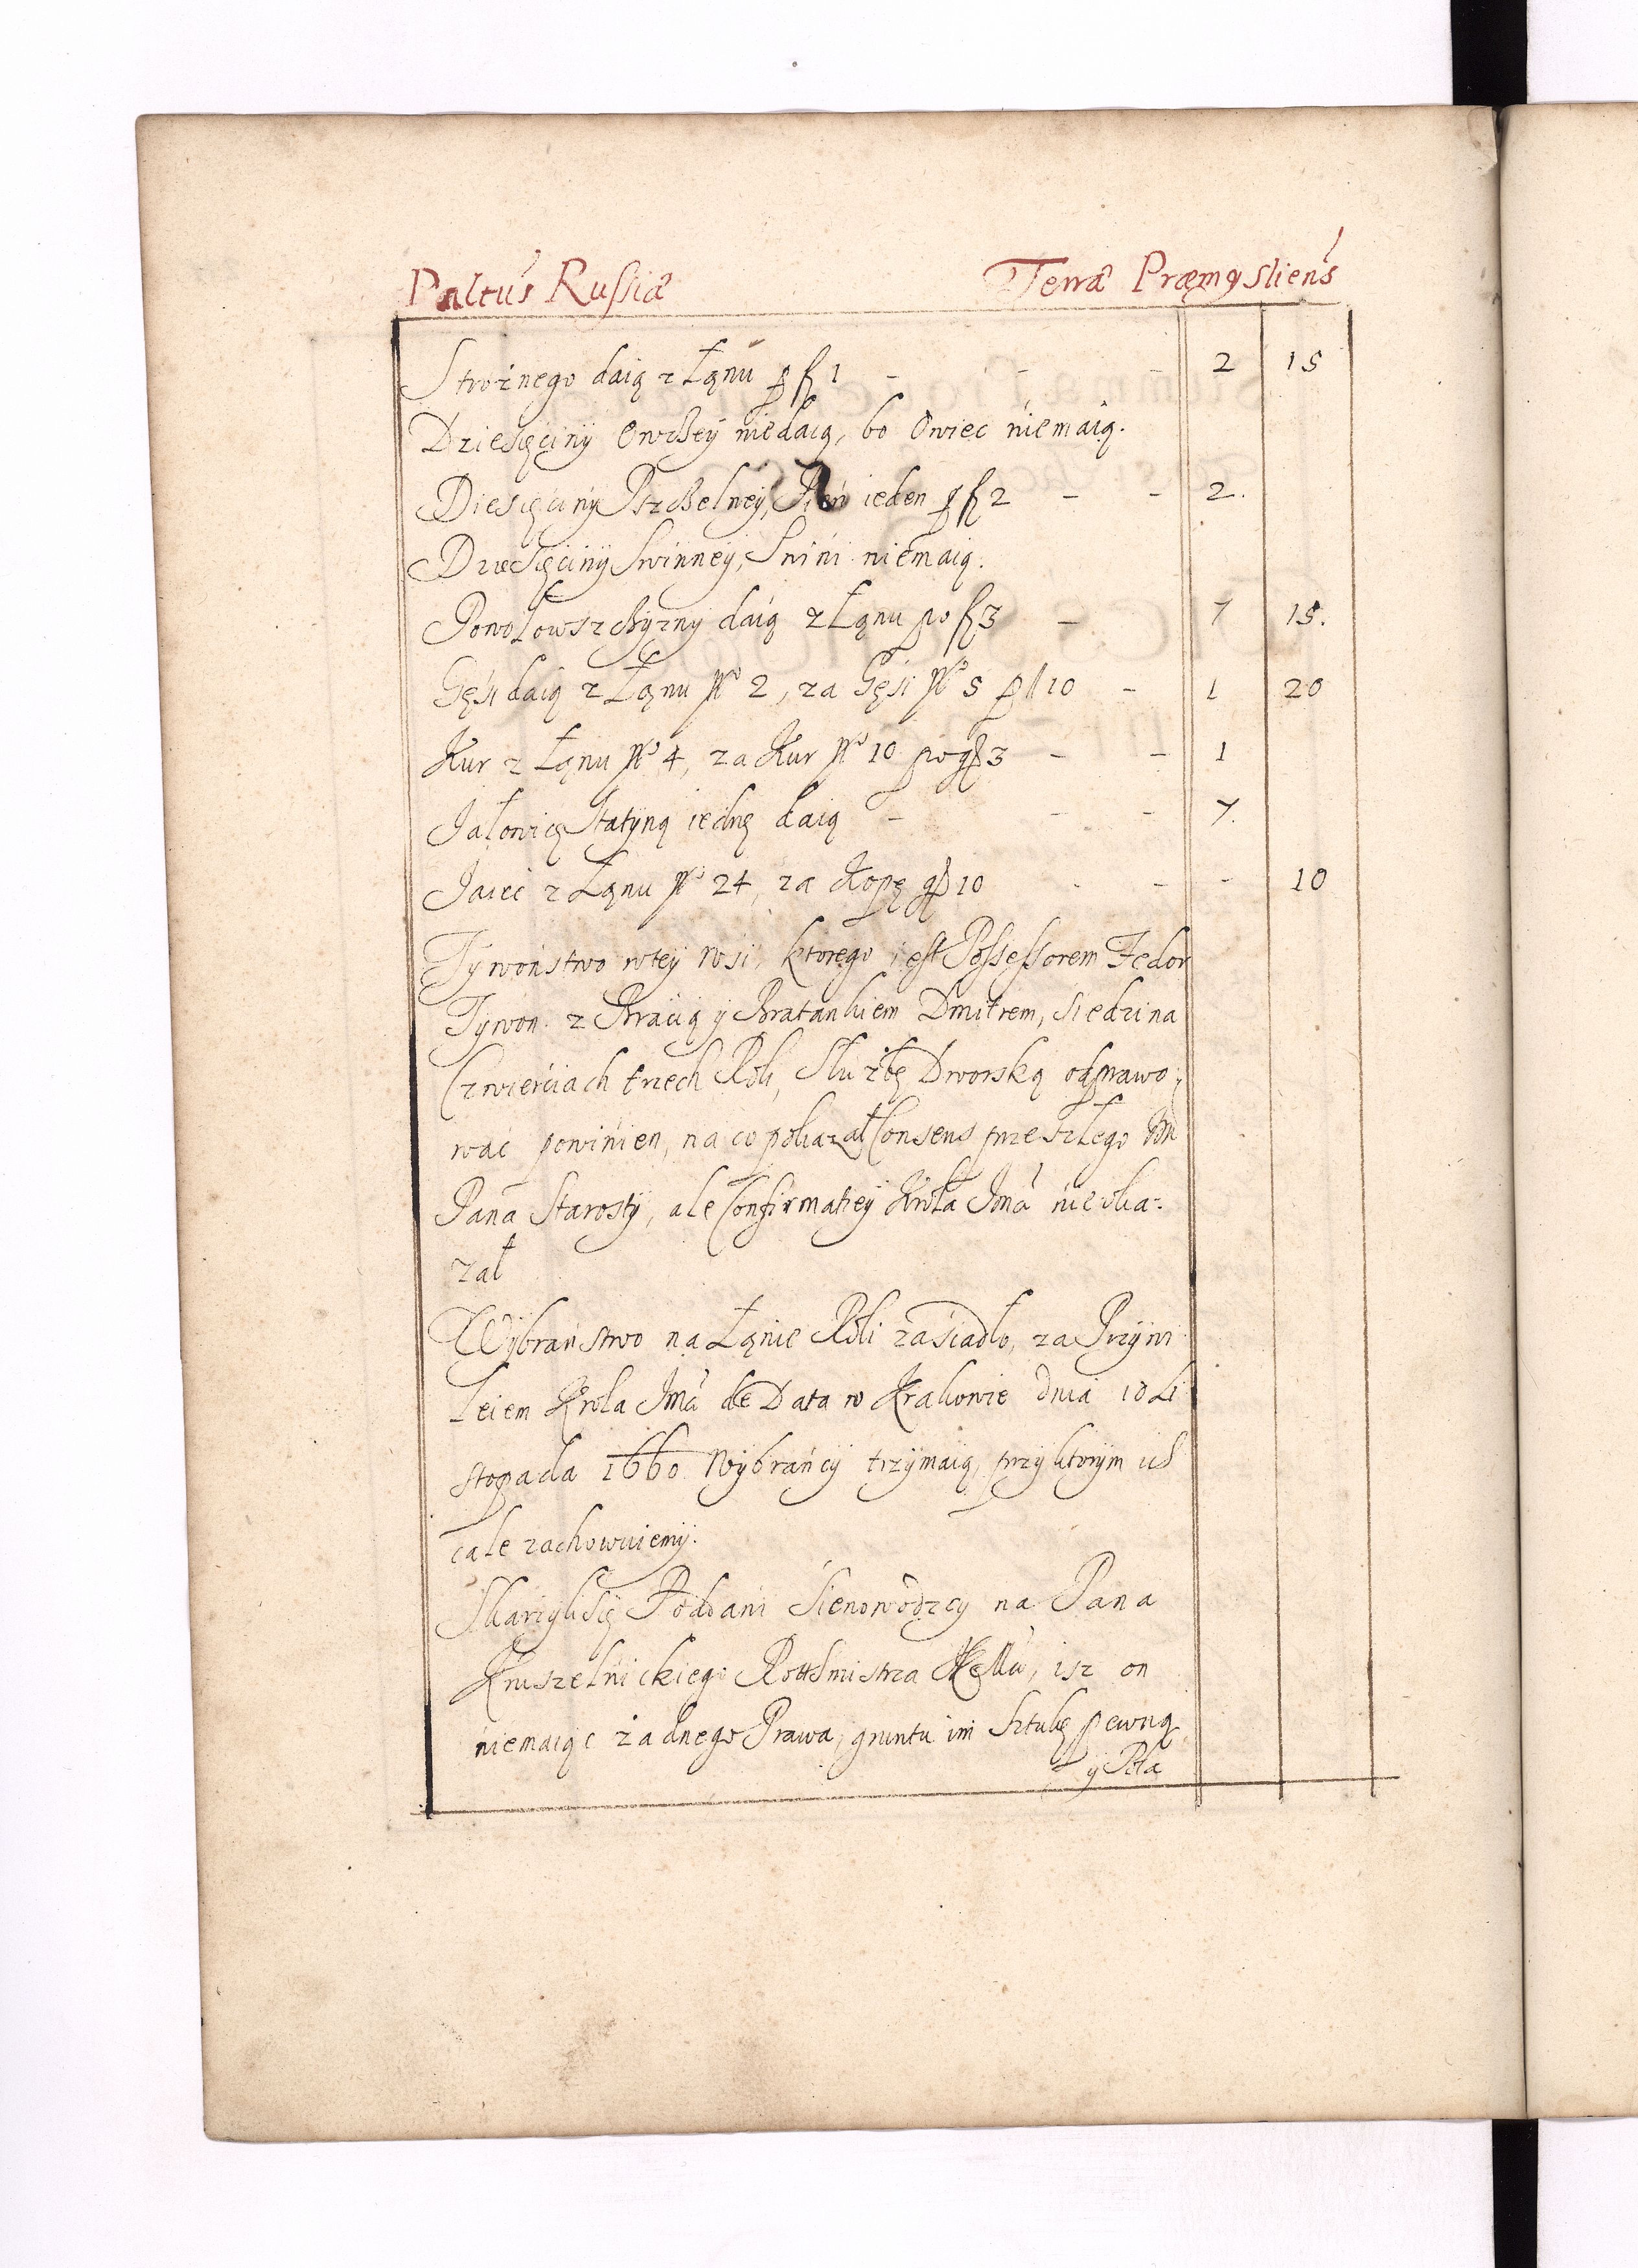 Paltus Russiæ Terræ Præmysliens
Strożnego daią z Łąnu p fl 1 - - - 2 15
Dziesięciny Owczey niedaią, bo Owiec niemaią.
Diesięciny Pszczelney, Pień ieden p fl 2 - - 2.
Dziesięciny Swinney, Swini niemaią.
Powołowszczyzny daią z Łąnu po fl 3 - 7 15.
Gęsi daią z Łąnu No 2, za Gęsi No 5 p fl 10 - 1 20
Kur z Łąnu No 4, za Kur No 10 po gr 3 - - 1
Jałowicę Statyną iednę daią - - - 7.
Jaiec z Łąnu No 24, za Kopę gr 10 - - - 10
Tywoństwo w tey wsi, ktorego iest Possessorem Fedor
Tywon z Bracią y Bratankiem Dmitrem, siedzi na
Czwierciach trzech Roli, Służbę Dworską odprawo
wać powinien, na co pokazał Consens przeszłego Jm
Pana Starosty, ale Confirmatiey Krola Jmci nieoka=
zał
Wybraństwo na Łąnie Roli zasiadło, za Przywi
leiem Krola Jmci de Data w Krakowie dnia 10 Li
stopada 1660 Wybrańcy trzymaią, przy ktorym ich
cale zachowuiemy.
Skarzyli się Poddani Sienowodzcy na Pana
Kruszelnickiego Rothmistrza JKMci, isz on
niemaiąc żadnego Prawa, gruntu im sztukę pewną
y Pola